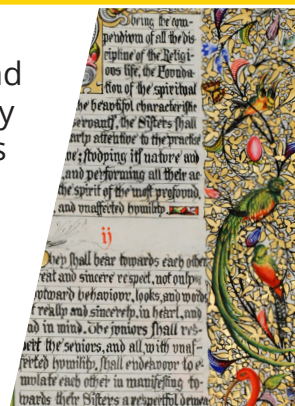 nd
y
s
being the com-
pendium of all the dis
cipline of the Religi-
ous life, the Founda-
tion of the spiritual
he beautiful characteristic
servants, the Sisters shall
arly attentive to the practise
ve; studying its nature and
, and performing all their ac
the spirit of the most profound,
, and unaffected humility.
ij
They shall bear towards each other
reat and sincere respect, not only
outward behaviour, looks, and words
t really and sincerely, in heart, and
ad in mind. The juniors shall res-
pect the seniors, and all, with unaf-
fected humility, shall endeavour to e-
mulate each other in manifesting to-
wards their Sisters a respectful demea